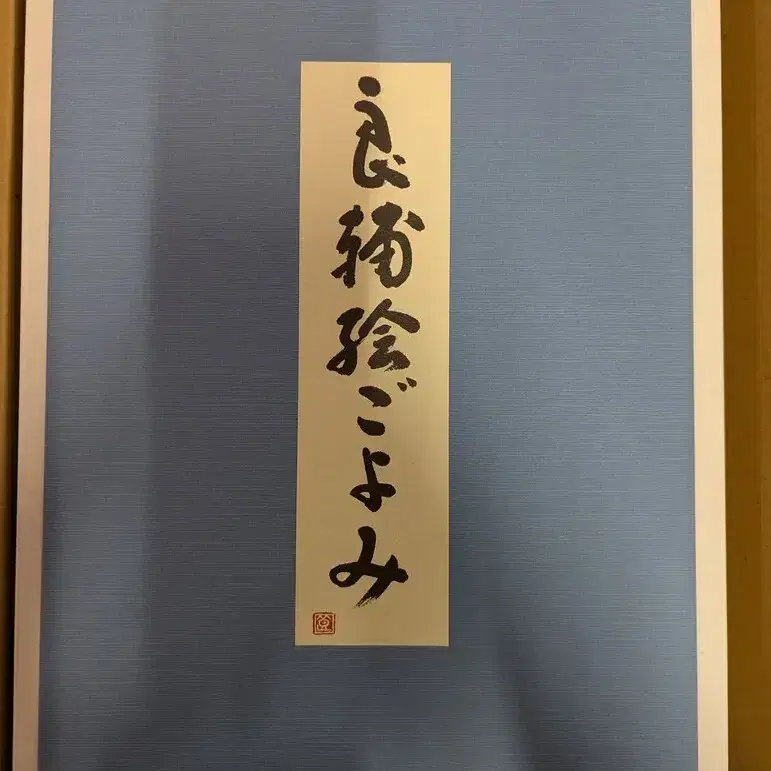 良輔絵ごよみ